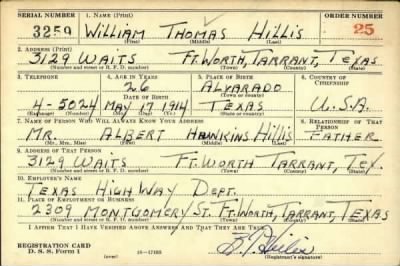 SERIAL NUMBER 1. NAME (Print) ORDER NUMBER
3259 WILLIAM THOMAS HILLIS 25
(First) (Middle) (Last)
2. ADDRESS (Print)
3129 WAITS FT. WORTH, TARRANT, TEXAS
(Number and street or R. F. D. number) (Town) (County) (State)
3. TELEPHONE 4. AGE IN YEARS 5. PLACE OF BIRTH 6. COUNTRY OF CITIZENSHIP
26 ALVARADO
DATE OF BIRTH (Town or county)
4-5024 MAY 17 1914 TEXAS U.S.A.
(Exchange) (Number) (Mo.) (Day) (Yr.) (State or country)
7. NAME OF PERSON WHO WILL ALWAYS KNOW YOUR ADDRESS 8. RELATIONSHIP OF THAT PERSON
MR. ALBERT HAWKINS HILLIS FATHER
(Mr., Mrs., Miss) (First) (Middle) (Last)
9. ADDRESS OF THAT PERSON
3129 WAITS FT. WORTH TARRANT, TEX.
(Number and street or R. F. D. number) (Town) (County) (State)
10. EMPLOYER'S NAME
TEXAS HIGHWAY DEPT.
11. PLACE OF EMPLOYMENT OR BUSINESS
2309 MONTGOMERY ST. FT. WORTH, TARRANT, TEXAS
(Number and street or R. F. D. number) (Town) (County) (State)
I AFFIRM THAT I HAVE VERIFIED ABOVE ANSWERS AND THAT THEY ARE TRUE.
REGISTRATION CARD
D. S. S. Form 1 (over) 16-17105 (Registrant's signature)